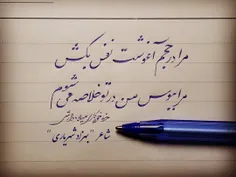 مرا در حجم آغوشت نفس بکش
مرا ببوس من در تو خلاصه می شوم
شاعر "بهزاد شهریاری"